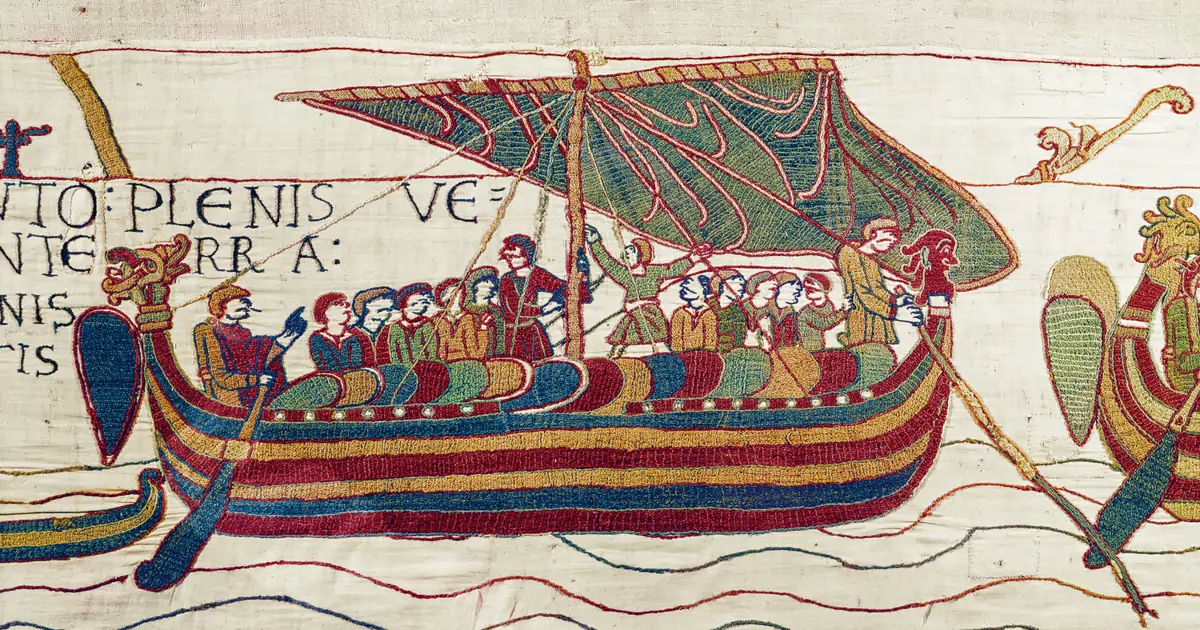 NTO: PLENIS VE=
NTE RR A:
NIS
TIS